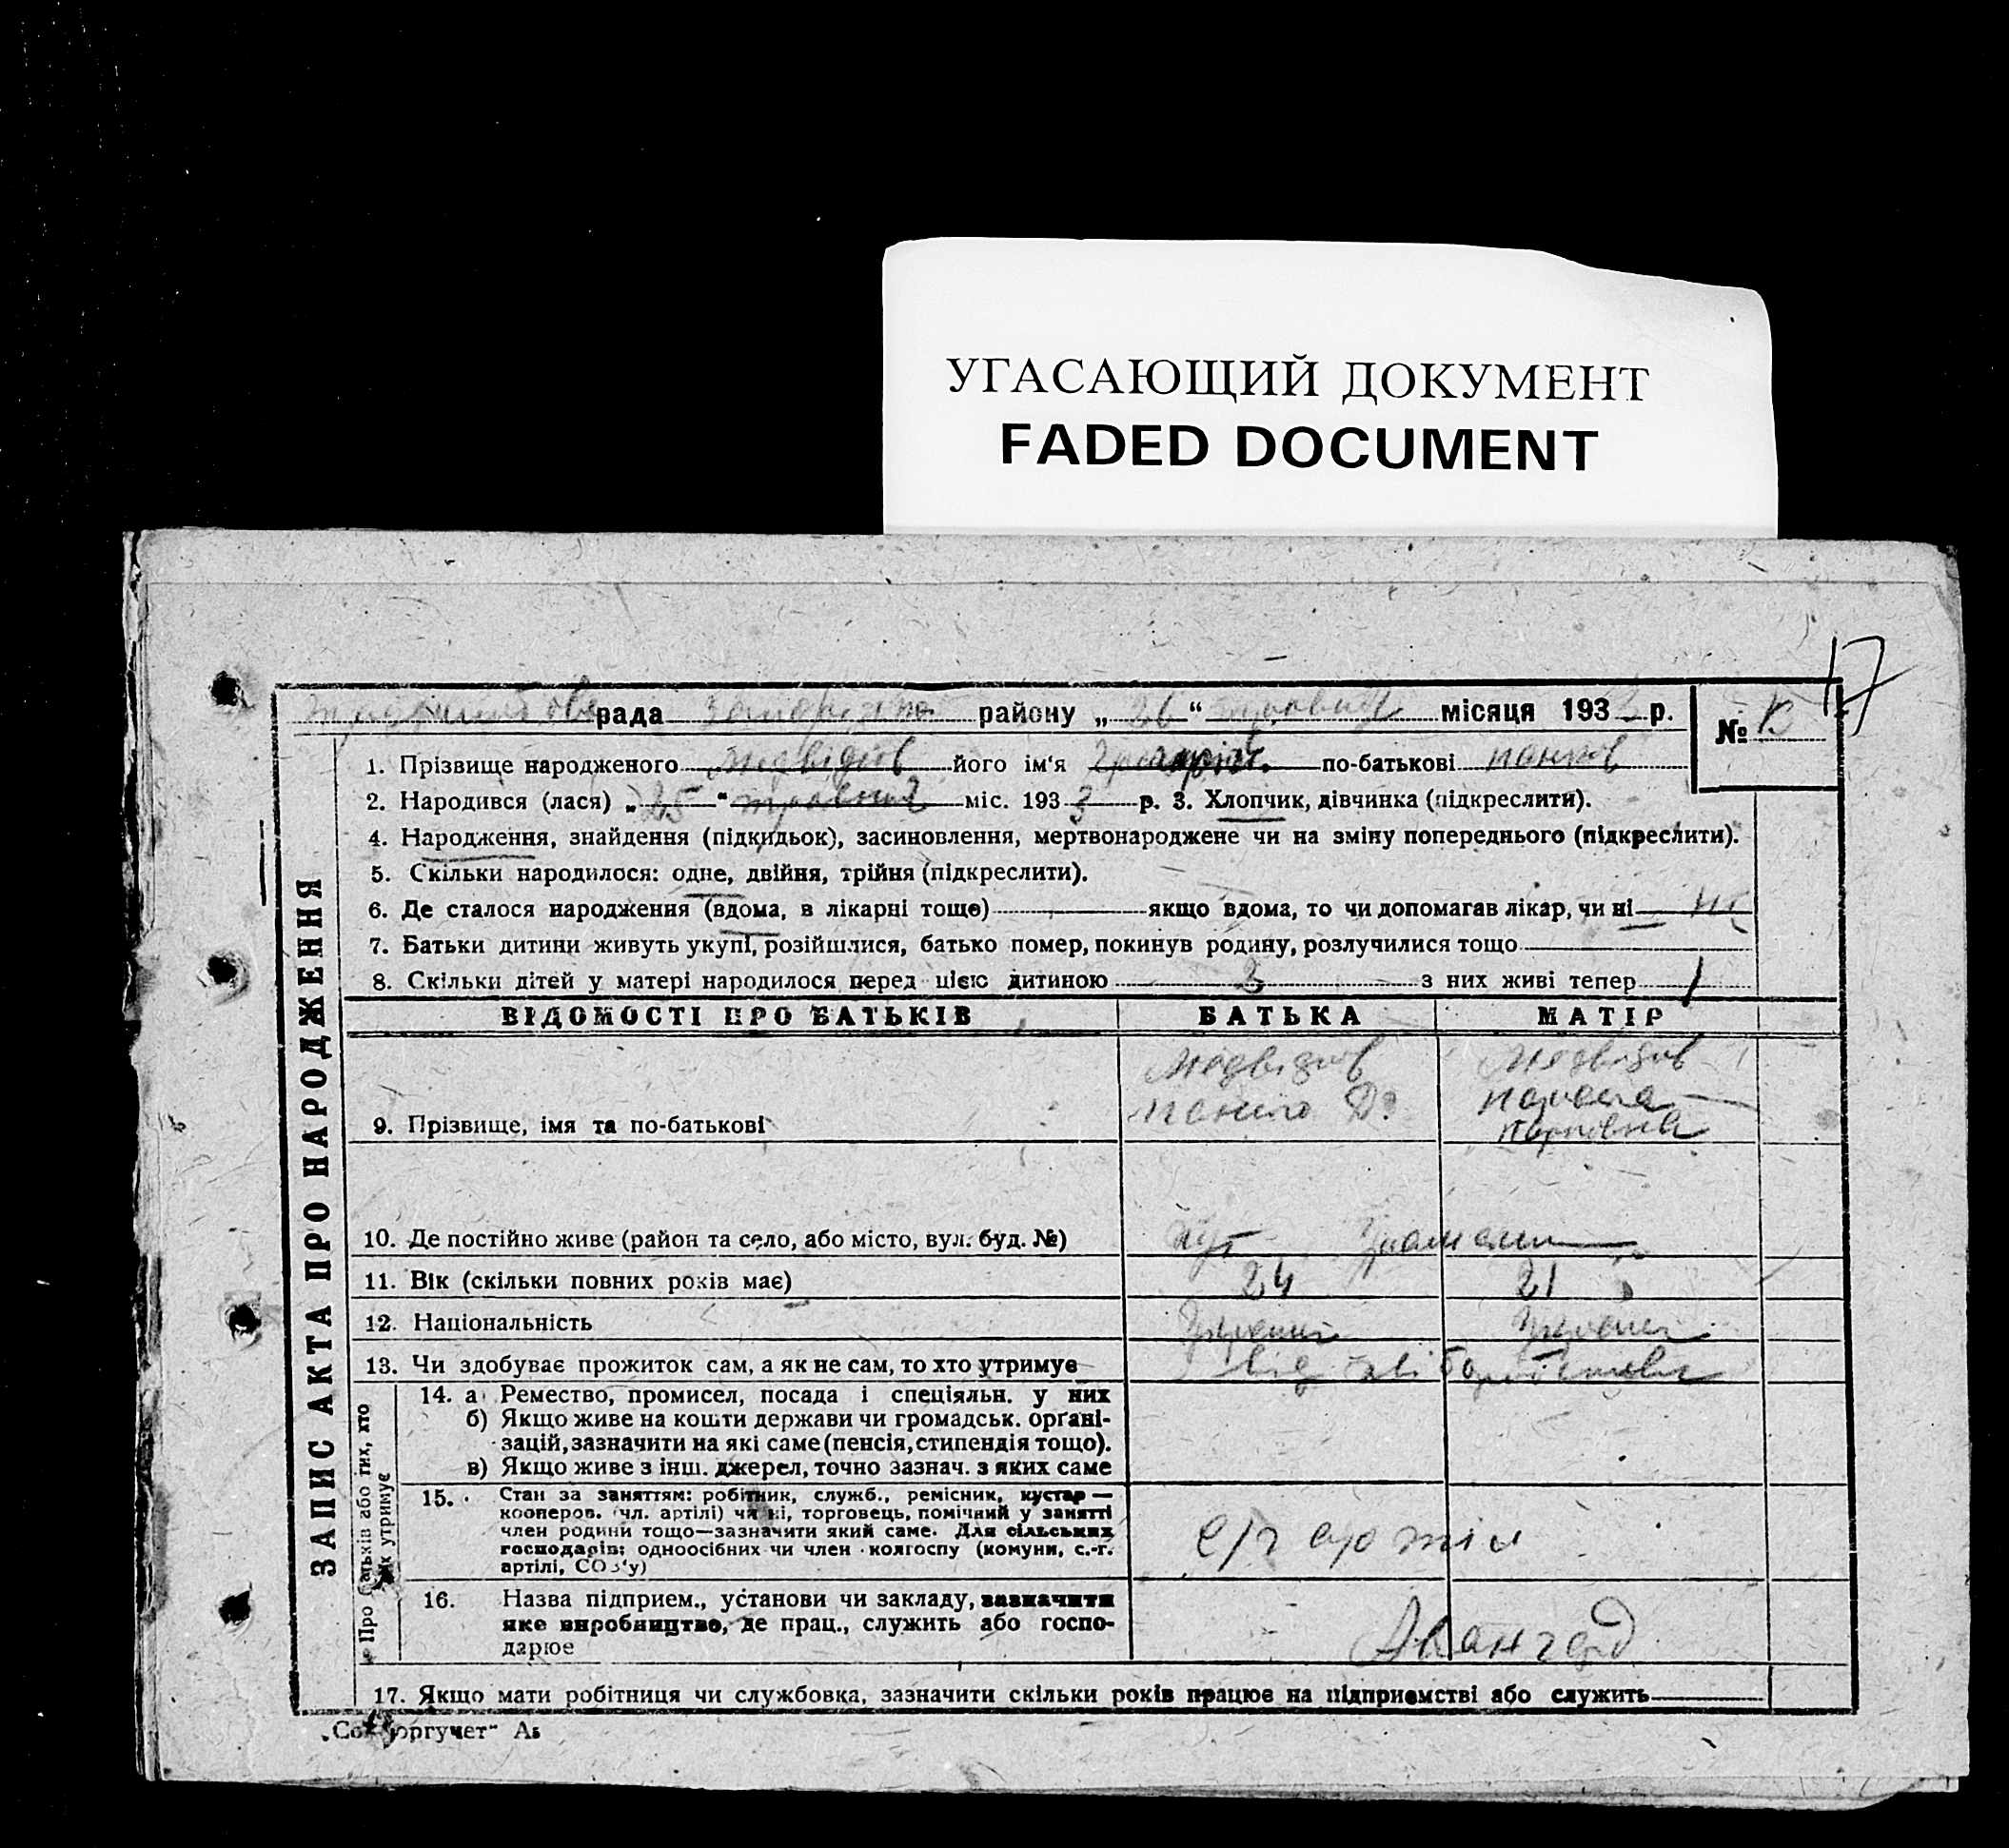 УГАСАЮЩИЙ ДОКУМЕНТ
FADED DOCUMENT
17
рада району „ 26 “ місяця 193 р.
№
1. Прізвище народженого Медвідів його ім'я по-батькові панків
2. Народився (лася) „ 25 “ травня міс. 193 3 р. 3. Хлопчик, дівчинка (підкреслити).
4. Народження, знайдення (підкидьок), засиновлення, мертвонароджене чи на зміну попереднього (підкреслити).
5. Скільки народилося: одне, двійня, трійня (підкреслити).
6. Де сталося народження (вдома, в лікарні тощо) якщо вдома, то чи допомагав лікар, чи ні ні
7. Батьки дитини живуть укупі, розійшлися, батько помер, покинув родину, розлучилися тощо
8. Скільки дітей у матері народилося перед цією дитиною з них живі тепер 1
ЗАПИС АКТА ПРО НАРОДЖЕННЯ
ВІДОМОСТІ ПРО БАТЬКІВ БАТЬКА МАТІР
Медвідів Медвідів
9. Прізвище, імя та по-батькові
10. Де постійно живе (район та село, або місто, вул. буд. №)
11. Вік (скільки повних років має) 24 21
12. Національність
13. Чи здобуває прожиток сам, а як не сам, то хто утримує
Про батьків або тих, хто їх утримує
14. а Ремество, промисел, посада і спеціяльн. у них
б) Якщо живе на кошти держави чи громадськ. орґані-
зацій, зазначити на які саме (пенсія, стипендія тощо).
в) Якщо живе з інш. джерел, точно зазнач. з яких саме
15. Стан за заняттям: робітник, служб., ремісник, кустар —
кооперов. (чл. артілі) чи ні, торговець, помічний у занятті
член родини тощо—зазначити який саме. Для сільських
господарів: одноосібних чи член колгоспу (комуни, с.-г.
артілі, СОЗ'у)
с/г артіл
16. Назва підприєм., установи чи закладу, зазначити
яке виробництво, де прац., служить або госпо-
дарює
Авангард
17. Якщо мати робітниця чи службовка, зазначити скільки років працює на підприємстві або служить